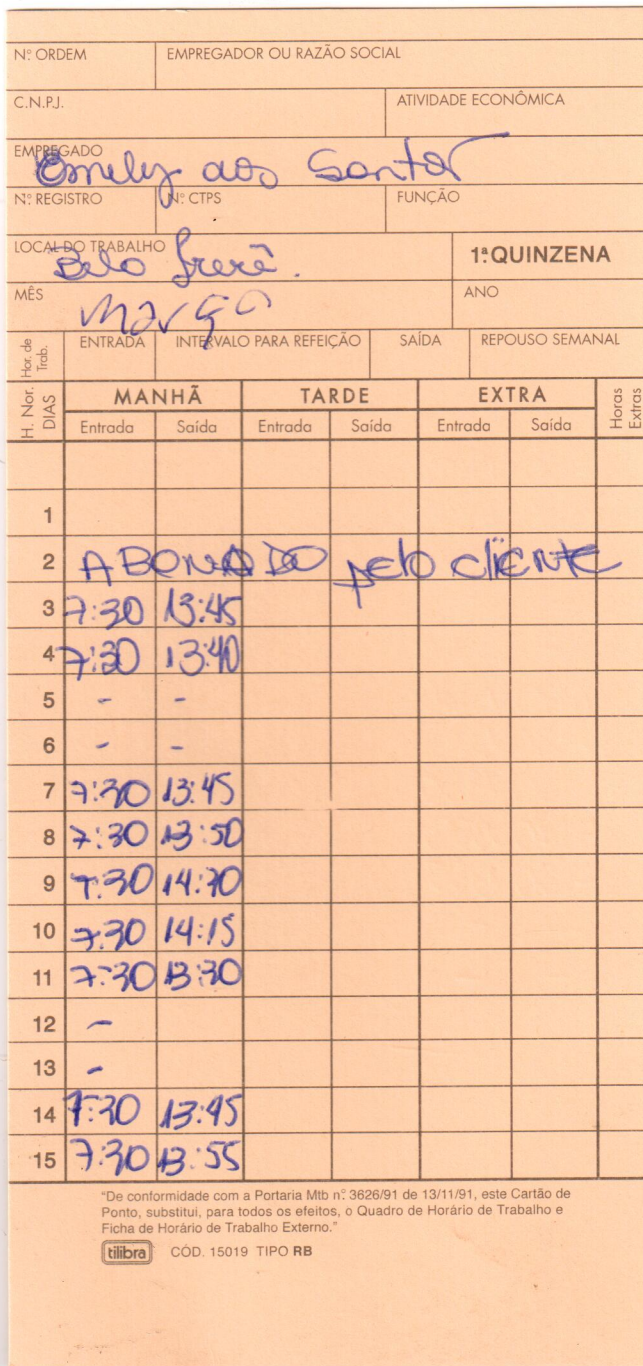 Nº ORDEM EMPREGADOR OU RAZÃO SOCIAL
C.N.P.J. ATIVIDADE ECONÔMICA
EMPREGADO
Emily dos Santos
Nº REGISTRO Nº CTPS FUNÇÃO
LOCAL DO TRABALHO 1ª QUINZENA
Belo
MÊS ANO
Março
Hor. de Trab. ENTRADA INTERVALO PARA REFEIÇÃO SAÍDA REPOUSO SEMANAL
H. Nor. DIAS MANHÃ TARDE EXTRA Horas Extras
Entrada Saída Entrada Saída Entrada Saída
1
2 ABONADO pelo cliente
3 7:30 13:45
4 7:30 13:40
5 - -
6 - -
7 7:30 13:45
8 7:30 13:50
9 7:30 14:30
10 7:30 14:15
11 7:30 13:30
12 -
13 -
14 7:30 13:45
15 7:30 13:55
"De conformidade com a Portaria Mtb nº 3626/91 de 13/11/91, este Cartão de
Ponto, substitui, para todos os efeitos, o Quadro de Horário de Trabalho e
Ficha de Horário de Trabalho Externo."
tilibra CÓD. 15019 TIPO RB